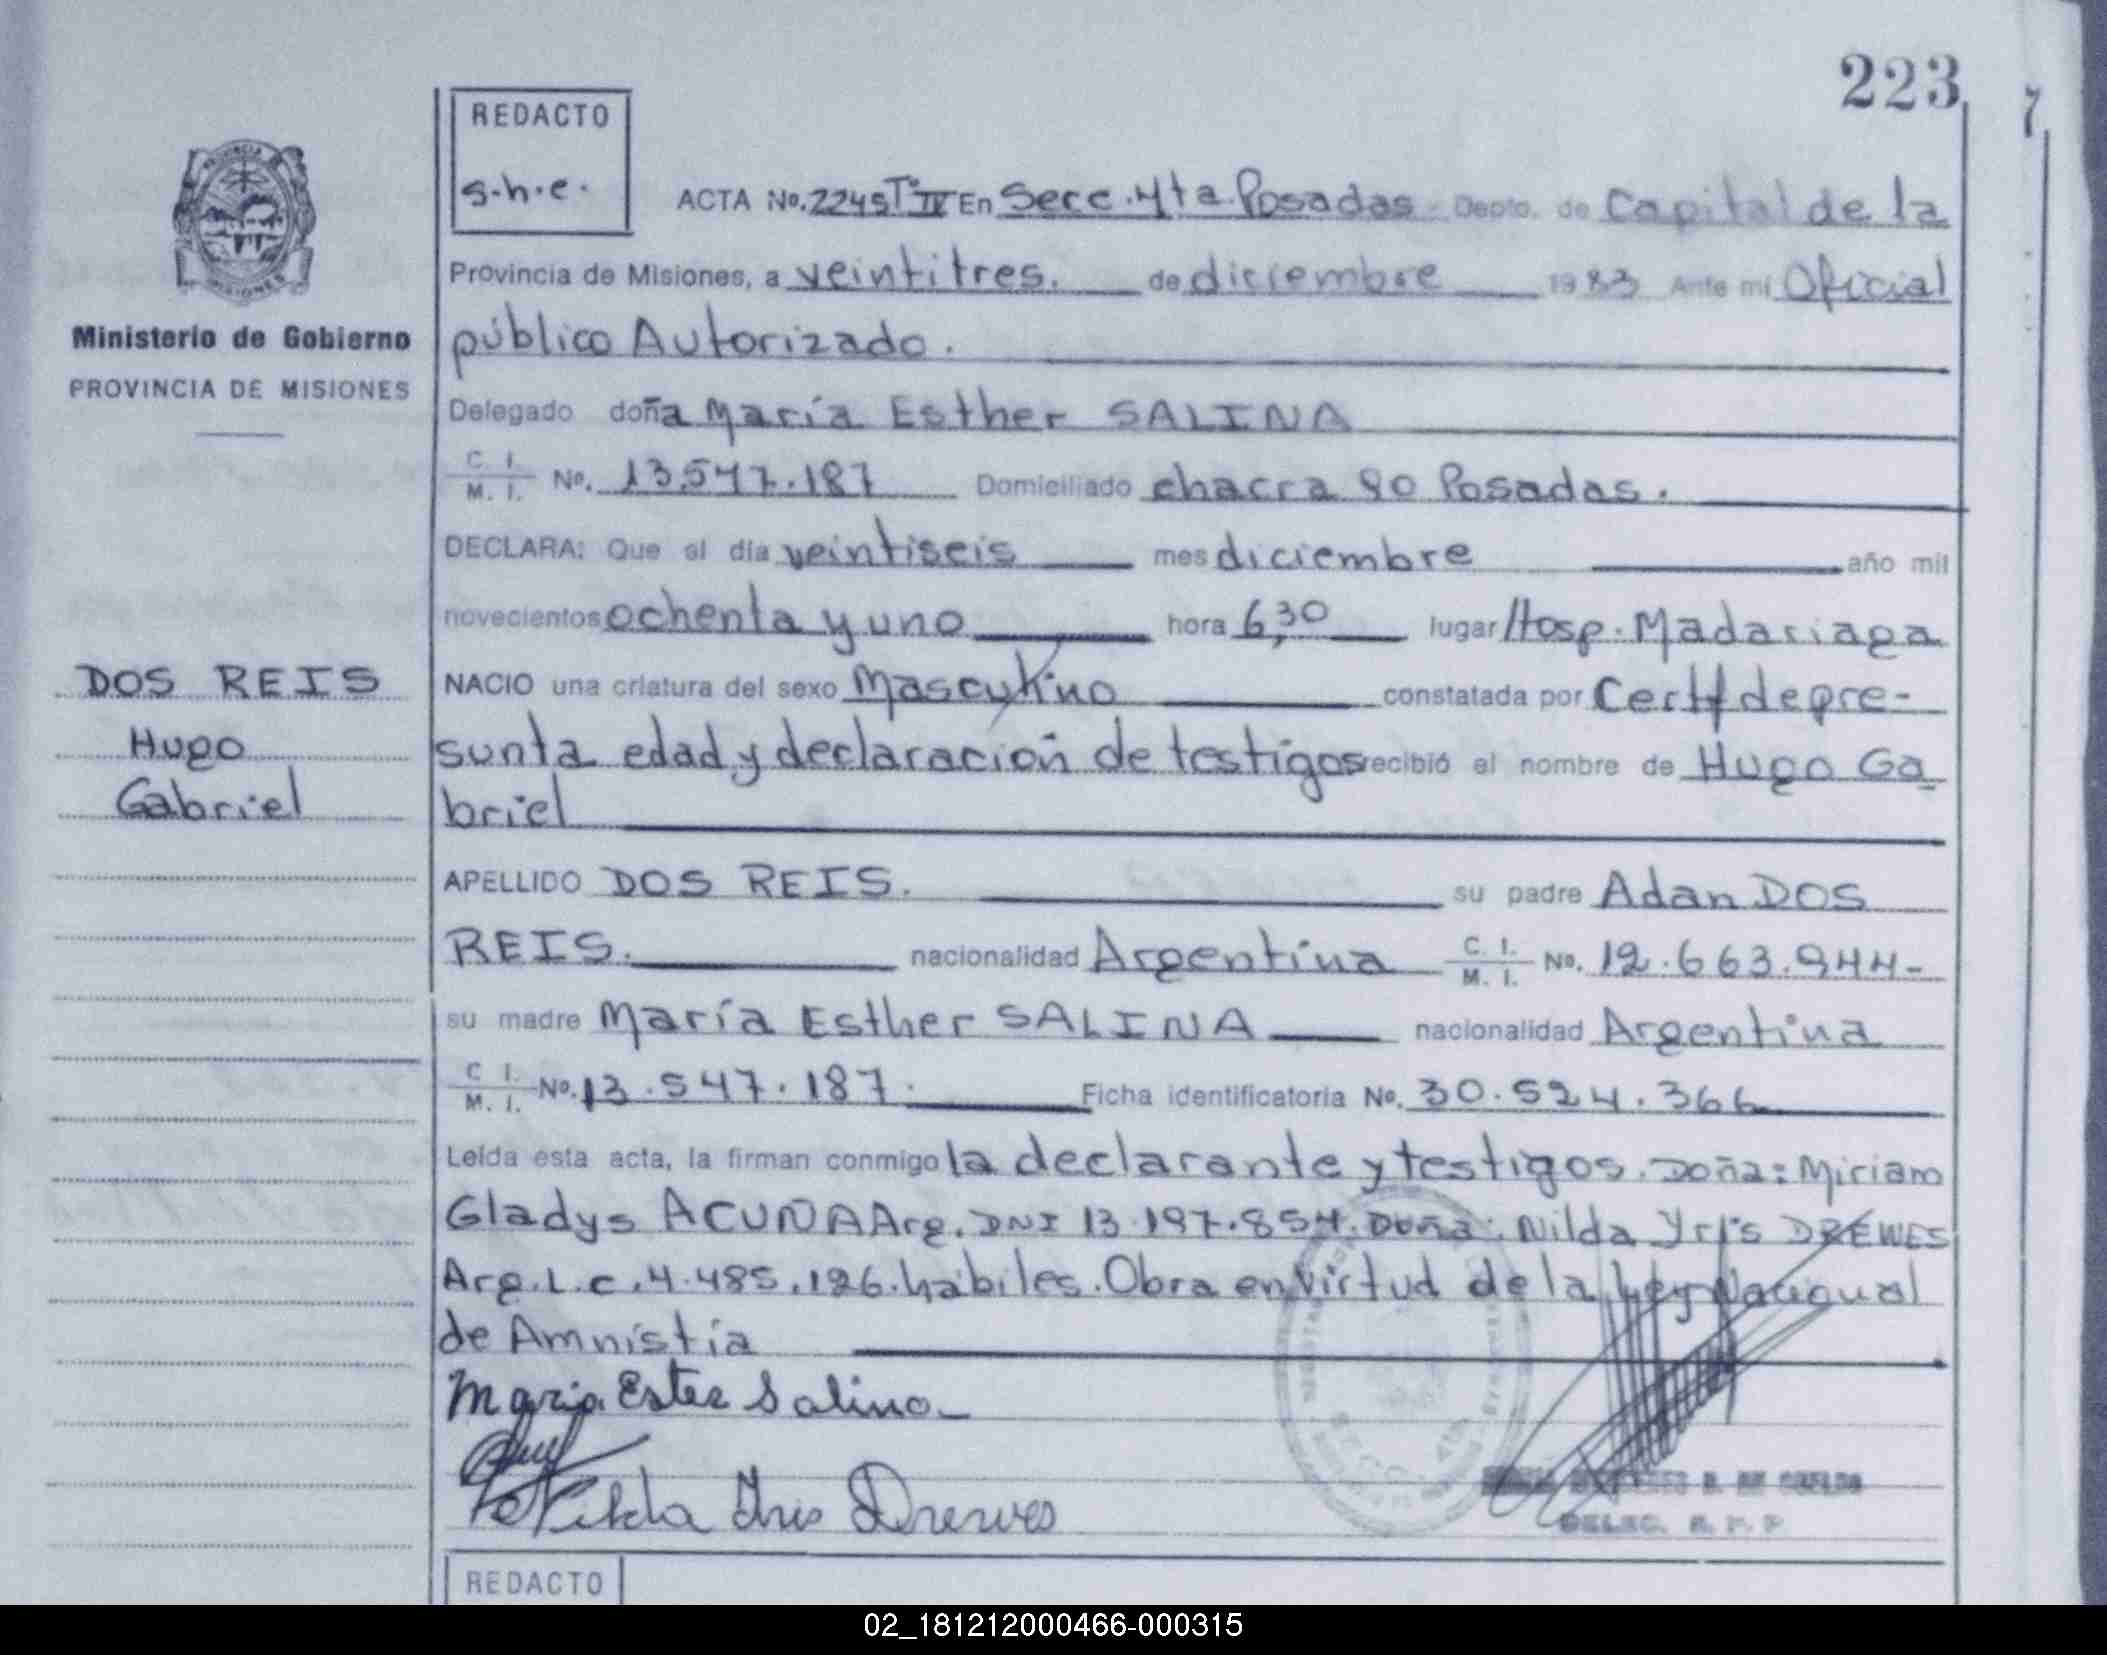 223
7
REDACTO
s.h.e.
ACTA No. 2245 Tº IV En Secc. 4ta. Posadas Depto. de Capital de la
Provincia de Misiones, a veintitres. de diciembre 1983 Ante mí Oficial
público Autorizado.
Delegado doña María Esther SALINA
C. I. M. I. No. 13.547.187 Domiciliado chacra 90 Posadas.
DECLARA: Que el día veintiseis mes diciembre año mil
novecientos ochenta y uno hora 6,30 lugar Hosp. Madariaga
NACIO una criatura del sexo Masculino constatada por Certf de pre-
sunta edad y declaración de testigos recibió el nombre de Hugo Ga
briel
APELLIDO DOS REIS. su padre Adan DOS
REIS. nacionalidad Argentina C. I. M. I. No. 12.663.944-
su madre María Esther SALINA nacionalidad Argentina
C. I. M. I. No. 13.547.187. Ficha identificatoria No. 30.524.366
Leída esta acta, la firman conmigo la declarante y testigos. Doña: Miriam
Gladys ACUÑA Arg. DNI 13.197.854. Doña: Nilda Yris DREWES
Arg. L.c. 4.485.126. hábiles. Obra en virtud de la Ley Nacional
de Amnistía
Maria Ester Salina
Nilda Iris Drewes
SECC. 4ta
DELEG. R. P. P
Ministerio de Gobierno
PROVINCIA DE MISIONES
DOS REIS
Hugo
Gabriel
REDACTO
02_181212000466-000315